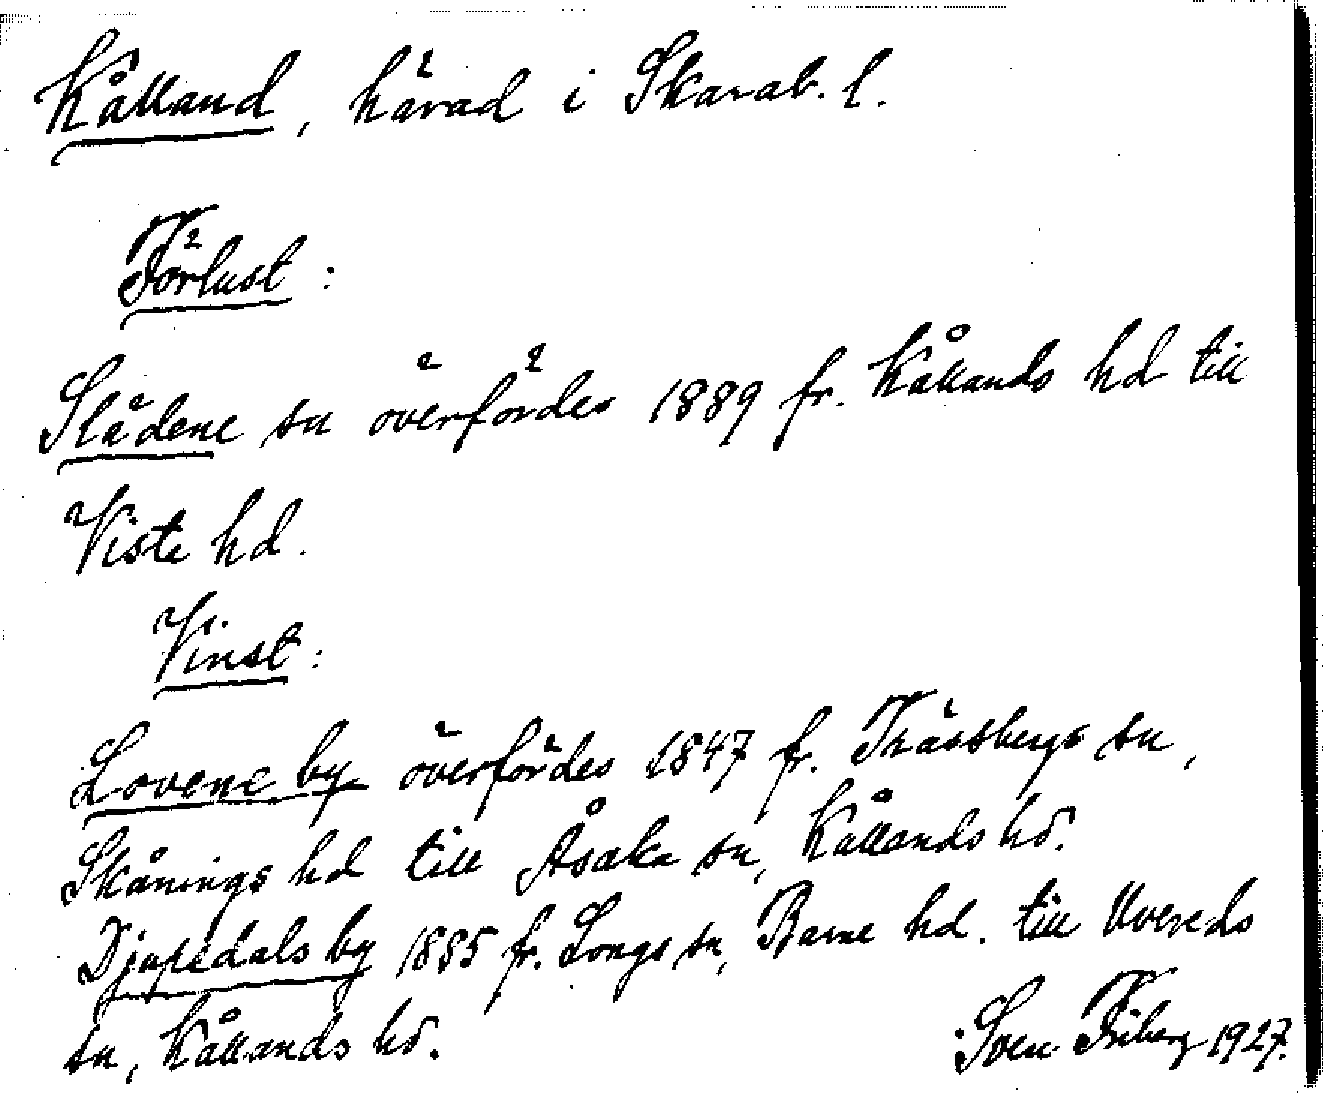 Kålland, härad i Skarab. l.
Förlust:
Slädene sn överfördes 1889 fr. Kållands hd till
Viste hd.
Vinst:
Lovene by överfördes 1847 fr. Trässbergs sn,
Skånings hd till Åsaka sn, Kållands hd.
Djupedals by 1885 fr. Longs sn, Barne hd. till Uvereds
sn, Kållands hd.
Sven Friberg 1927.